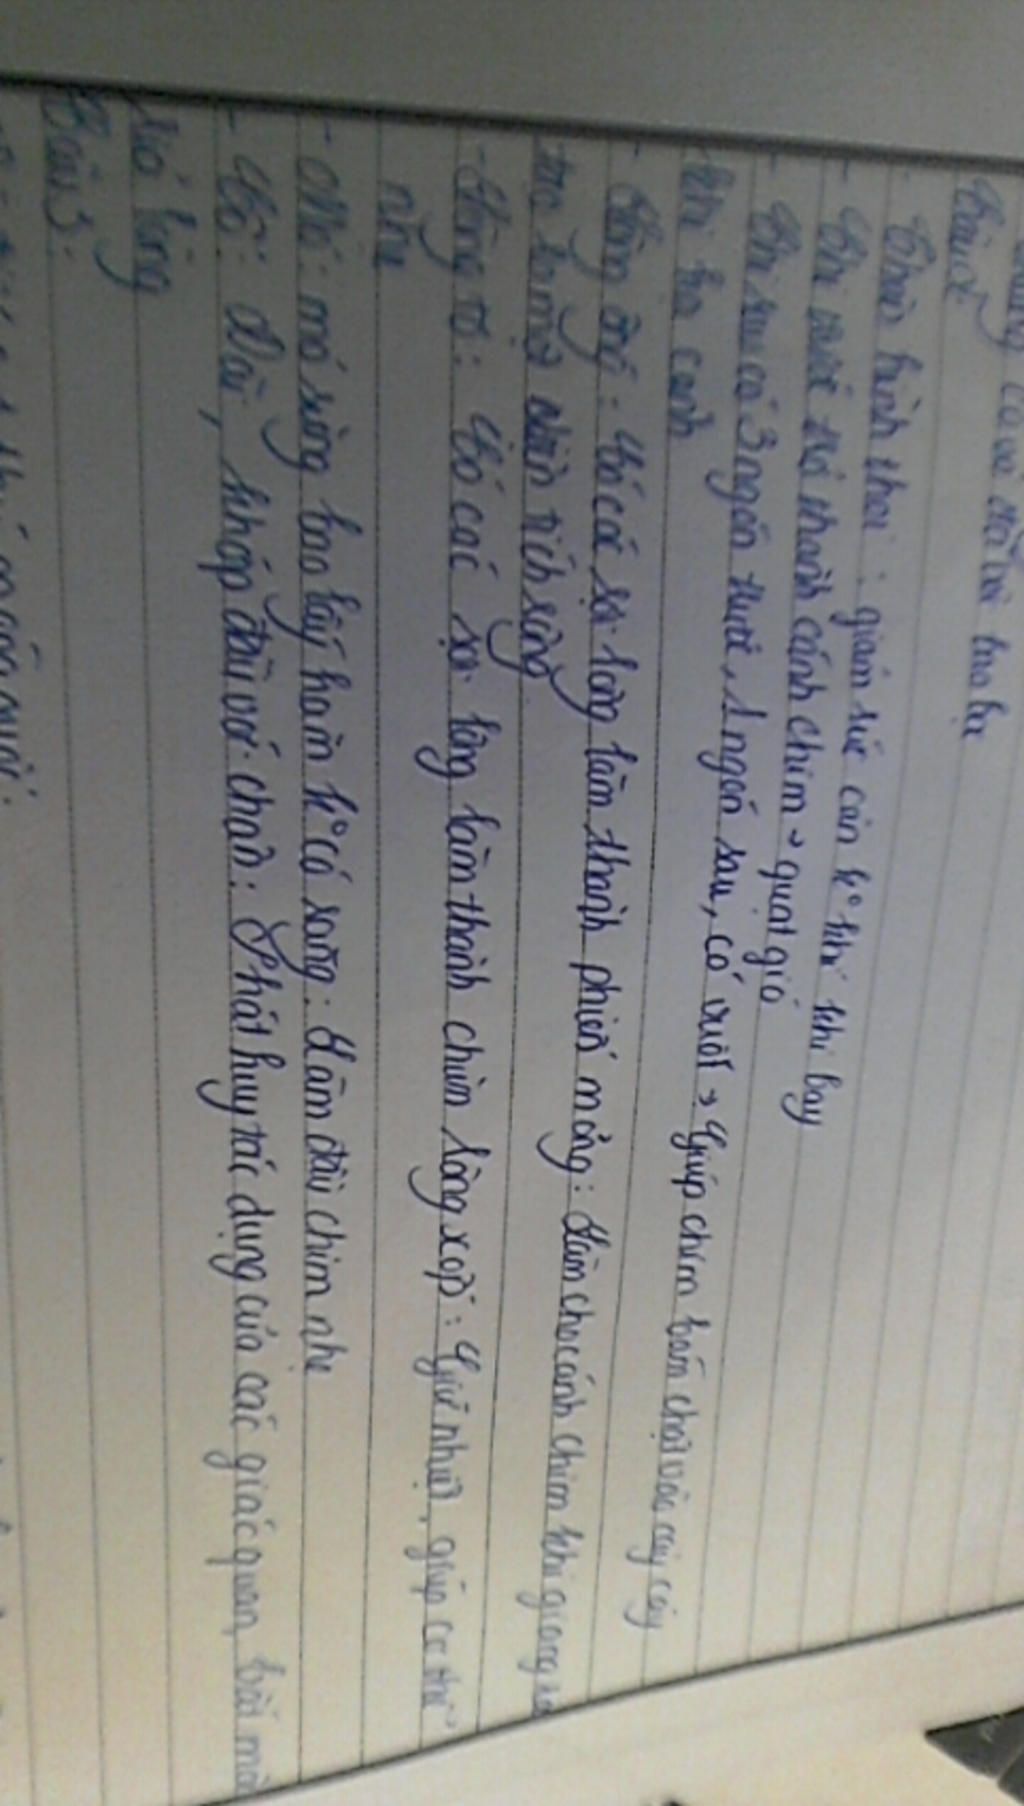 Câu 2
- Thân hình thoi : giảm sức cản k° khí khi bay
- Chi trước thành cánh chim → quạt gió
- Chi sau có 3 ngón trước, 1 ngón sau, có vuốt → Giúp chim bám chặt vào cây
khi hạ cánh
- Lông ống : Có các sợi lông làm thành phiến mỏng : Làm cho cánh chim khi giang ra
tạo ra một diện tích rộng
- Lông tơ : Có các sợi lông làm thành chùm lông xốp : Giữ nhiệt, giúp cơ thể
nhẹ
- Mỏ : mỏ sừng bao lấy hàm k° có răng : Làm đầu chim nhẹ
- Cổ : Dài, khớp đầu với thân : Phát huy tác dụng của các giác quan, bắt mồi
rỉa lông
Câu 3 :